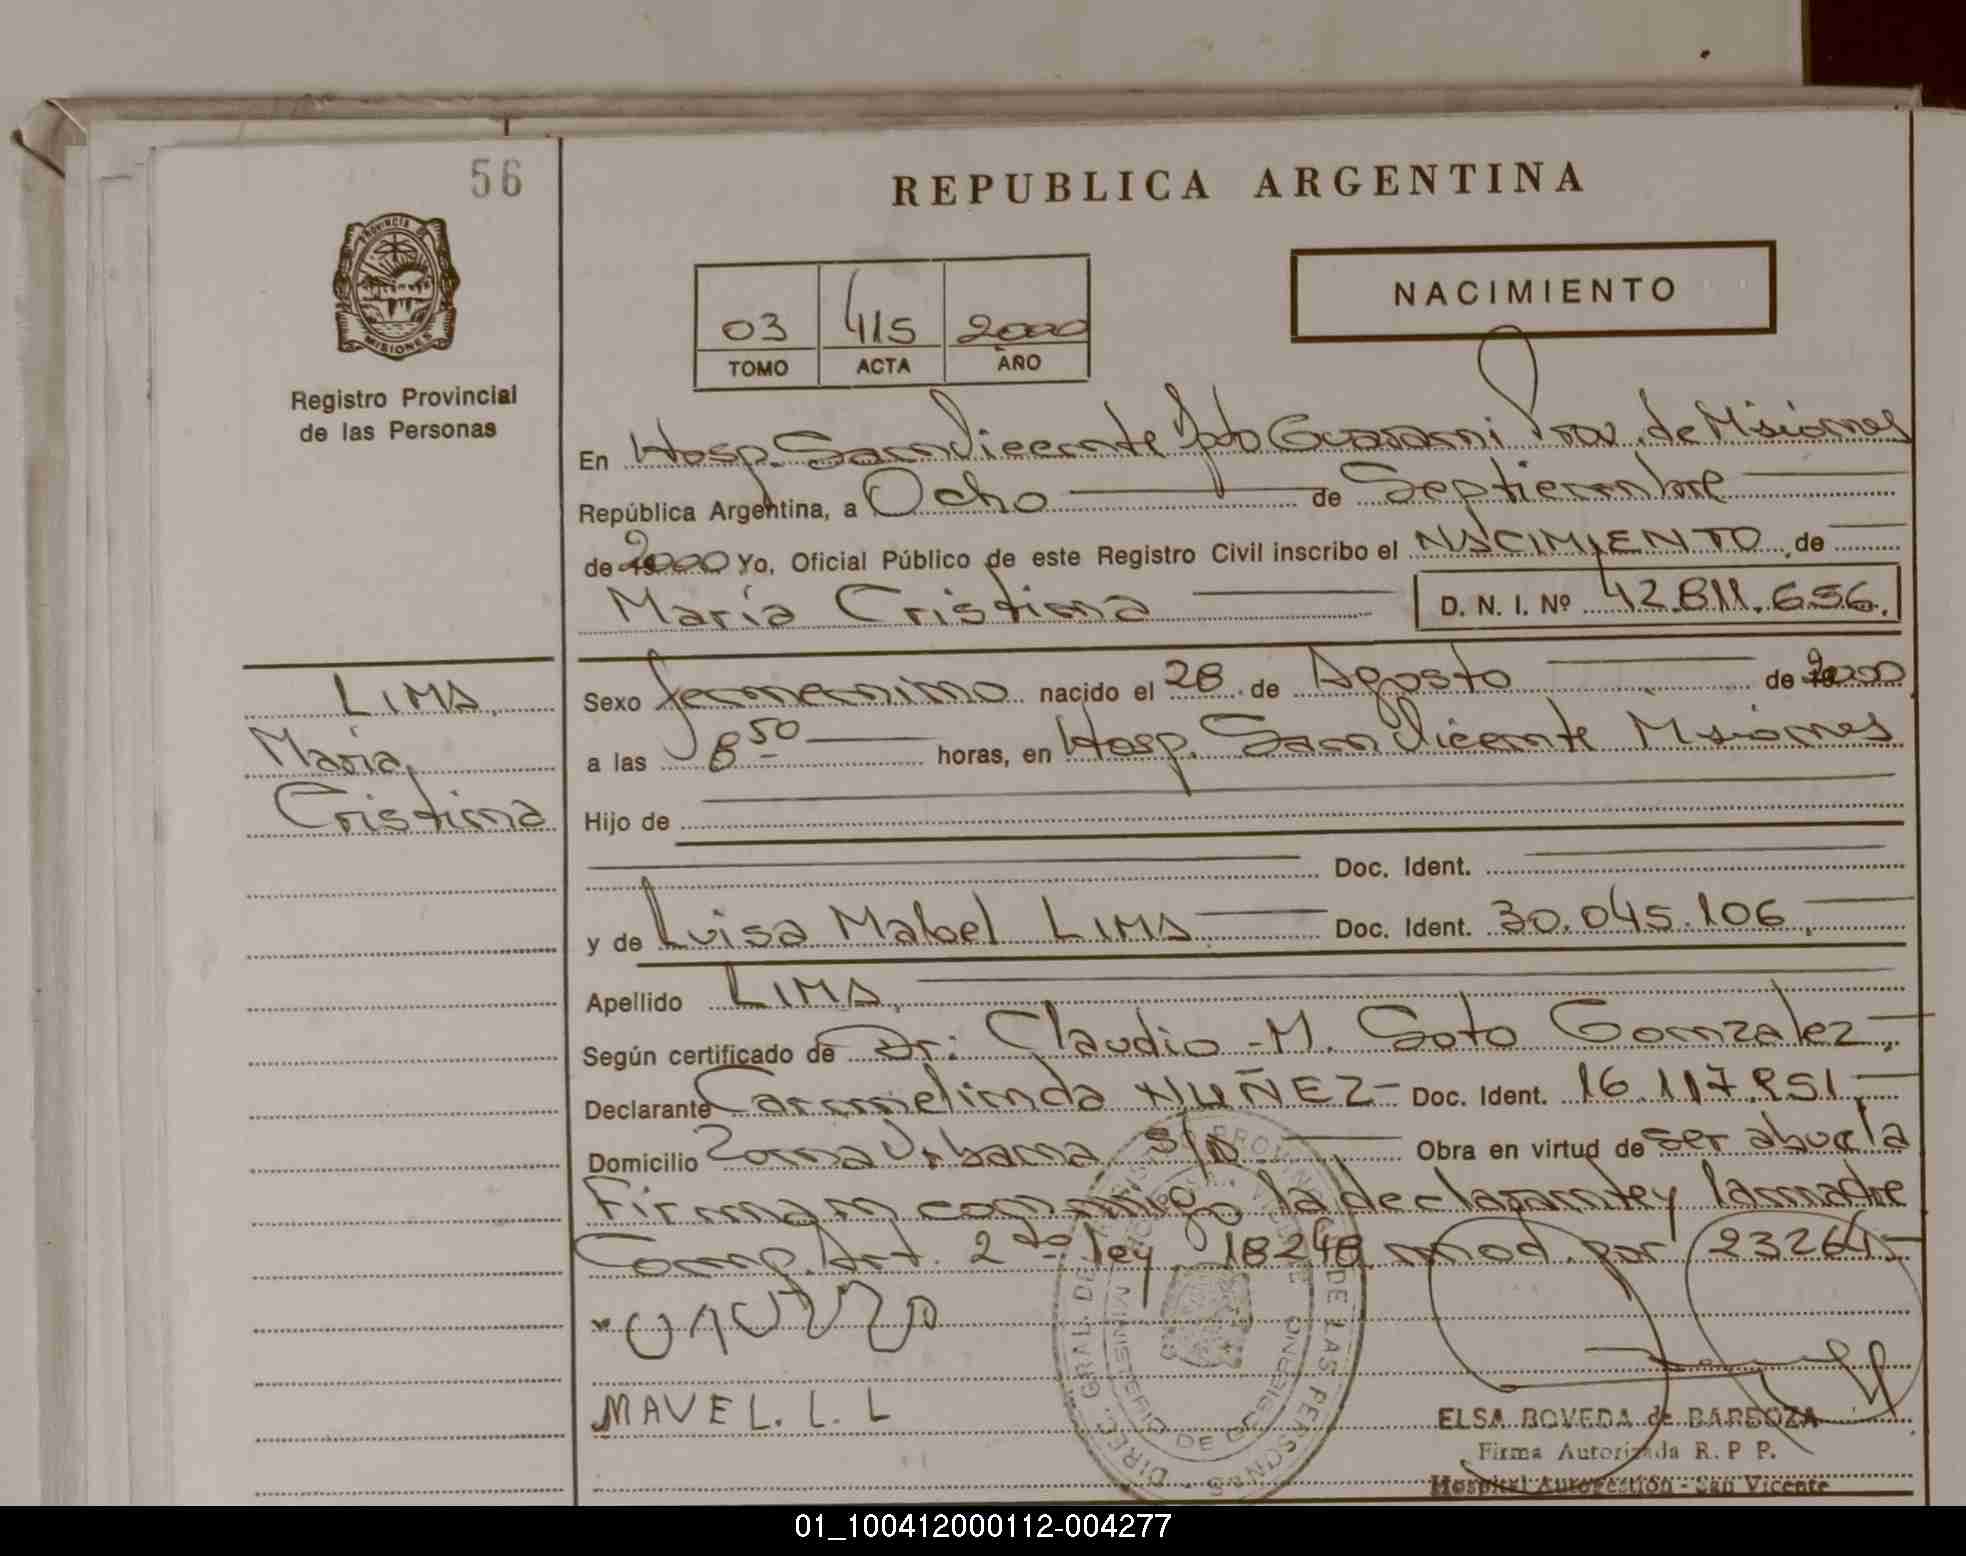 56
REPUBLICA ARGENTINA
PROVINCIA DE
MISIONES
Registro Provincial
de las Personas
03 415 2000
TOMO ACTA AÑO
NACIMIENTO
En Hosp. San Vicente Dpto Guarani Prov. de Misiones
República Argentina, a Ocho de Septiembre
de 2000 Yo, Oficial Público de este Registro Civil inscribo el NACIMIENTO, de
Maria Cristina D. N. I. Nº 42.811.656.
LIMA,
Maria
Cristina
Sexo femenino nacido el 28 de Agosto de 2000
a las 8 50 horas, en Hosp. San Vicente Misiones
Hijo de
Doc. Ident.
y de Luisa Mabel LIMA Doc. Ident. 30.045.106,
Apellido LIMA,
Según certificado de Dr: Claudio M. Soto Gonzalez,
Declarante Carmelinda NUÑEZ Doc. Ident. 16.117.951,
Domicilio Zona Urbana S/N Obra en virtud de ser abuela
Firman conmigo la declarante y la madre
Comp. Art. 2do ley 18248 mod. por 23264
MAVEL. L. L
DIREC. GRAL. DEL REGISTRO PROVINCIAL DE LAS PERSONAS
MINISTERIO DE GOBIERNO
ELSA BOVEDA de BARBOZA
Firma Autorizada R. P. P.
Hospital Autogestión - San Vicente
01_100412000112-004277